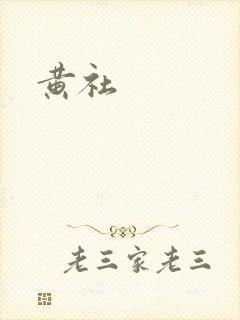 黄社
老三家老三